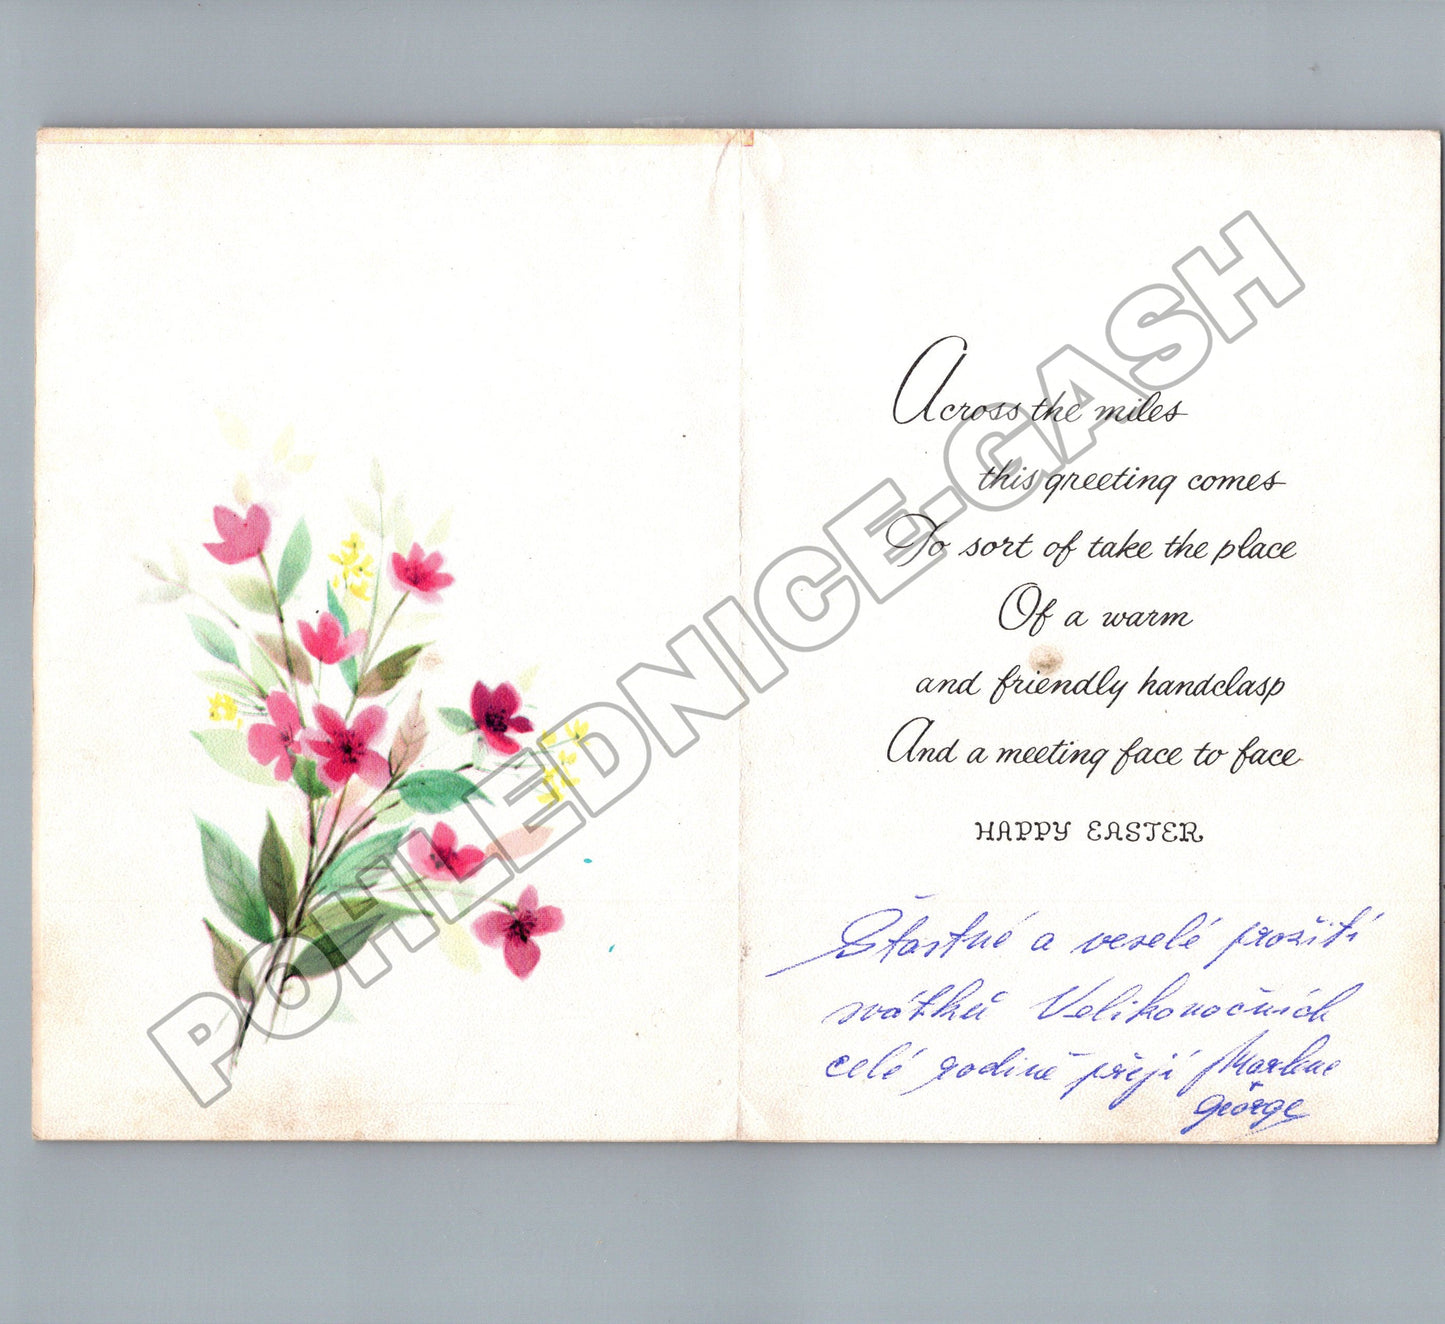 Across the miles
this greeting comes
To sort of take the place
Of a warm
and friendly handclasp
And a meeting face to face
HAPPY EASTER
Šťastné a veselé prožití
svátků Velikonočních
celé rodině přejí Marlene
George
POHLEDNICE-GASH